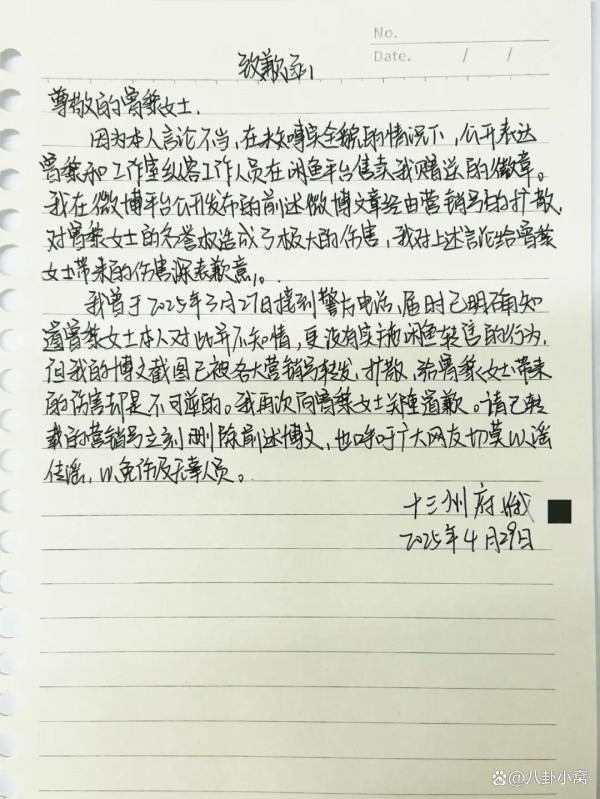 No.
Date. / /
致歉函
尊敬的曾黎女士.
因为本人言论不当,在未知事实全貌的情况下,公开表达
曾黎和工作室纵容工作人员在闲鱼平台售卖我赠送的徽章。
我在微博平台公开发布的前述微博文章经由营销号的扩散,
对曾黎女士的名誉权造成了极大的伤害,我对上述言论给曾黎
女士带来的伤害深表歉意。
我曾于2025年3月27日接到警方电话,届时已明确知
道曾黎女士本人对此并不知情,更没有实施闲鱼转售的行为,
但我的博文截图已被各大营销号转发、扩散,给曾黎女士带来
的伤害却是不可逆的。我再次向曾黎女士郑重道歉。请已转
载的营销号立刻删除前述博文,也呼吁广大网友切莫以谣
传谣,以免伤及无辜人员。
十三州府
2025年4月29日
@八卦小窝